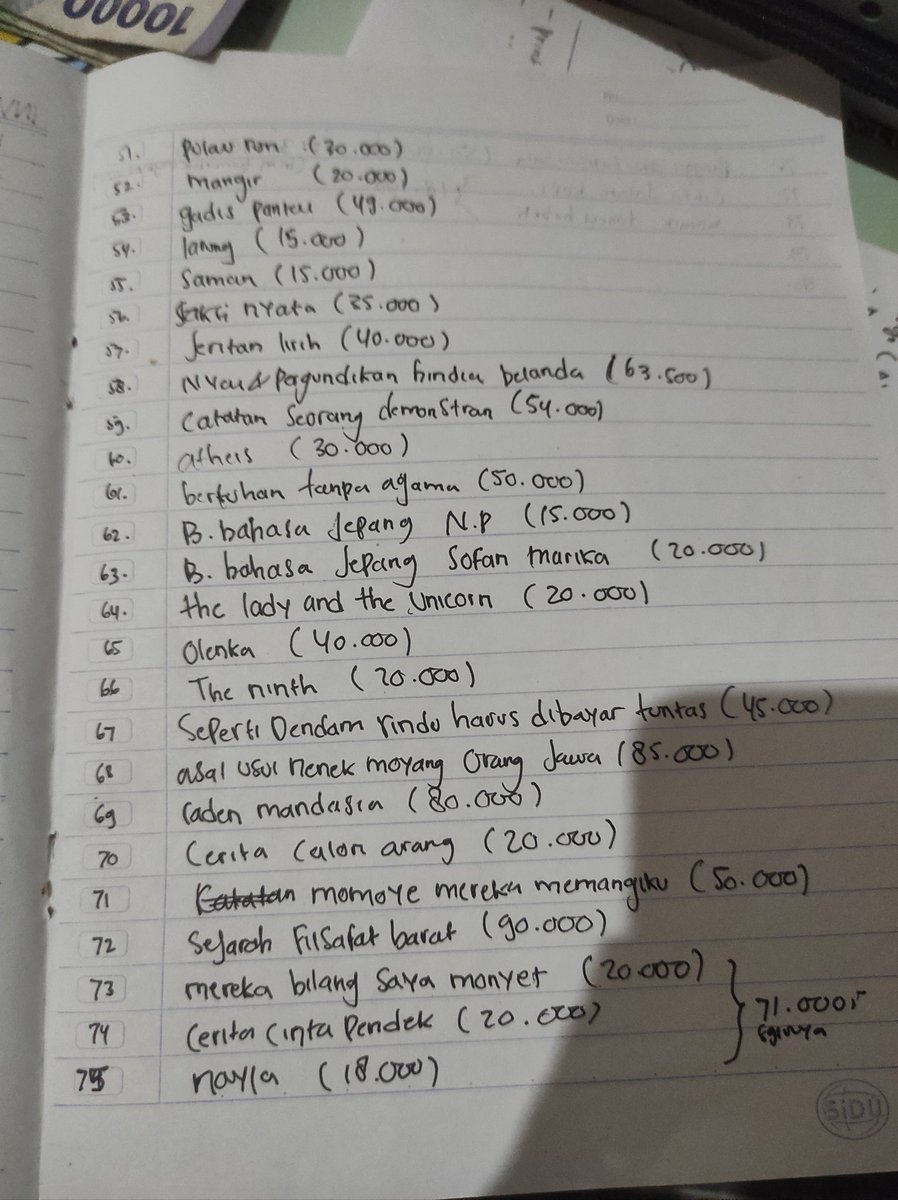 10000
51. Pulau run (30.000)
52. mangir (20.000)
53. gadis pantai (49.000)
54. larung (15.000)
55. Saman (15.000)
56. saksi nyata (35.000)
57. Jeritan lirih (40.000)
58. Nyai & Pergundikan hindia belanda (63.500)
59. Catatan Seorang demonstran (54.000)
60. atheis (30.000)
61. bertuhan tanpa agama (50.000)
62. B. bahasa Jepang N.P (15.000)
63. B. bahasa Jepang Sofan marika (20.000)
64. the lady and the Unicorn (20.000)
65 Olenka (40.000)
66 The ninth (20.000)
67 Seperti Dendam rindu harus dibayar tuntas (45.000)
68 asal usul nenek moyang Orang Jawa (85.000)
69 raden mandasia (80.000)
70 Cerita Calon arang (20.000)
71 Catatan momoye mereka memangiku (50.000)
72 Sejarah Filsafat barat (90.000)
73 mereka bilang saya monyet (20.000)
74 Cerita Cinta Pendek (20.000)
71.000,-
75 nayla (18.000)
SiDU